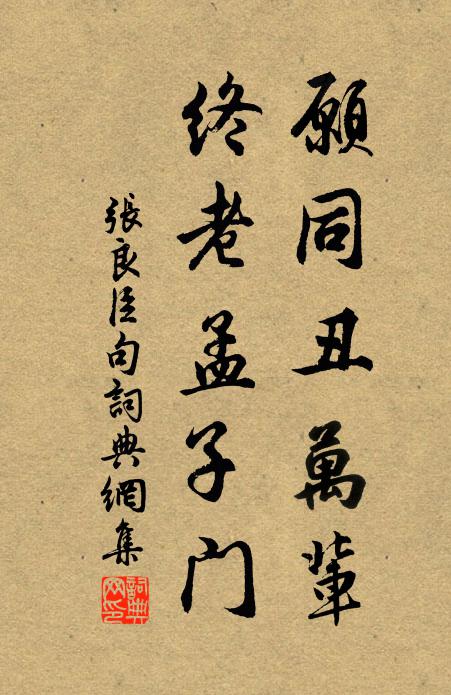 願同丑萬輩
終老孟子門
張良臣句詞典網集
詞典網印